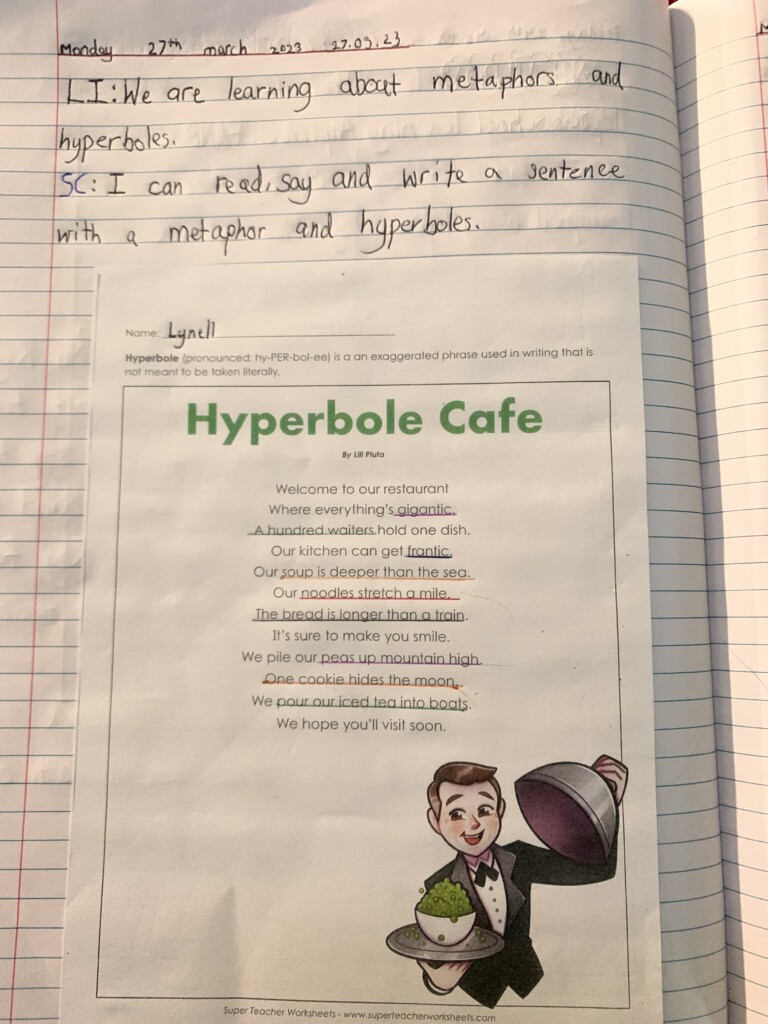 Monday 27th march 2023 27.03.23
LI: We are learning about metaphors and
hyperboles.
SC: I can read, say and write a sentence
with a metaphor and hyperboles.
Name: Lynell
Hyperbole (pronounced: hy-PER-bol-ee) is a an exaggerated phrase used in writing that is
not meant to be taken literally.
Hyperbole Cafe
By Lill Pluta
Welcome to our restaurant
Where everything's gigantic.
A hundred waiters hold one dish.
Our kitchen can get frantic.
Our soup is deeper than the sea.
Our noodles stretch a mile.
The bread is longer than a train.
It's sure to make you smile.
We pile our peas up mountain high.
One cookie hides the moon.
We pour our iced tea into boats.
We hope you'll visit soon.
Super Teacher Worksheets - www.superteacherworksheets.com